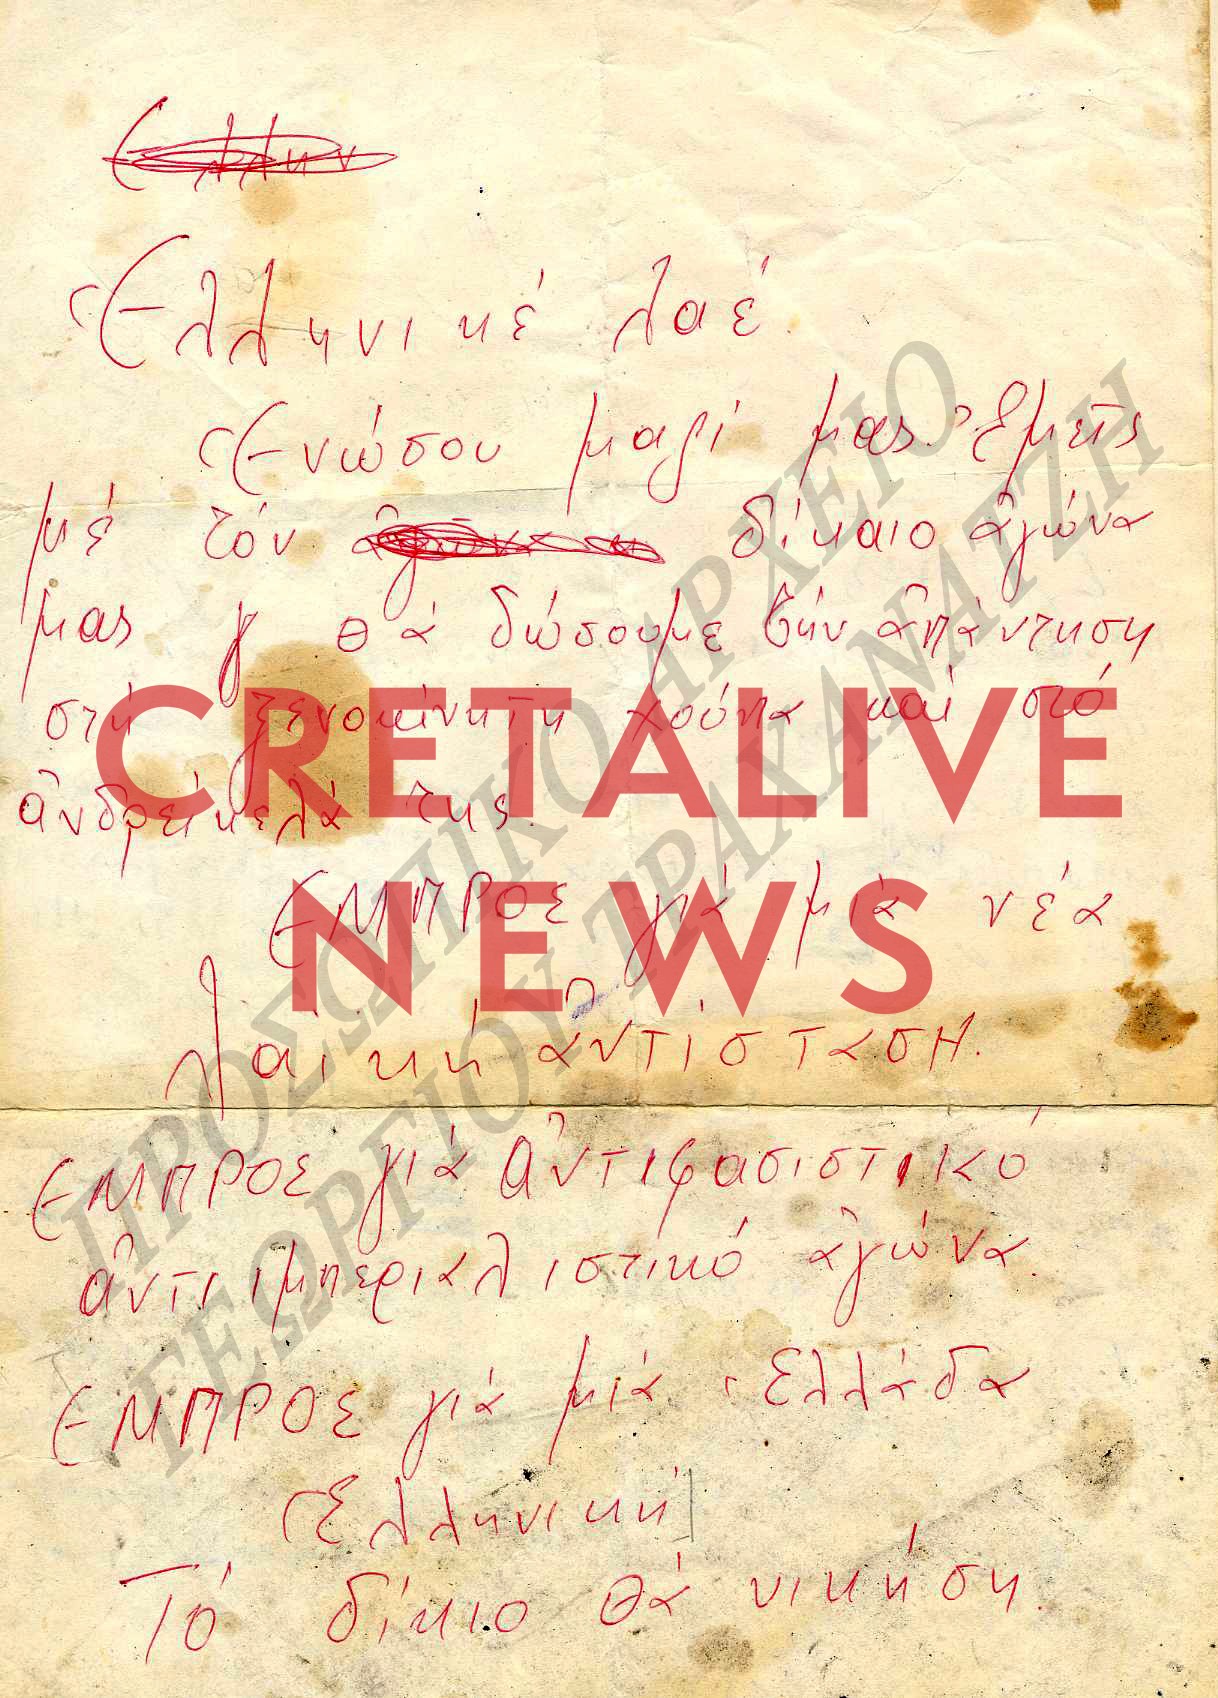 Ἑλλην
Ἑλληνικέ λαέ.
Ἑνώσου μαζί μας. Ἐμεῖς
μέ τόν ἀγώνα δίκαιο ἀγώνα
μας θά δώσουμε τήν ἀπάντηση
στή ξενοκίνητη χούντα καί στά
ἀνδρείκελά της.
ΕΜΠΡΟΣ γιά μιά νέα
λαϊκή ἀντίσταση.
ΕΜΠΡΟΣ γιά ἀντιφασιστικό
ἀντιιμπεριαλιστικό ἀγώνα.
ΕΜΠΡΟΣ γιά μιά Ἑλλάδα
Ἑλληνική
Τό δίκιο θά νικήση.
ΠΡΟΣΩΠΙΚΟ ΑΡΧΕΙΟ
ΓΕΩΡΓΙΟΥ ΤΡΑΧΑΝΑΤΖΗ
CRETALIVE
NEWS